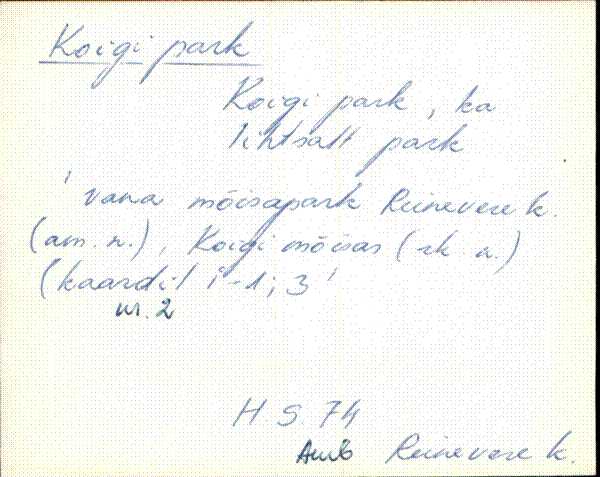 Koigi park
Koigi park, ka
lihtsalt park
' vana mõisapark Reinevere k.
(am. n.), Koigi mõisas (rk. n.)
(kaardil i-1; 3'
nr. 2
H. S. 74
Amb Reinevere k.